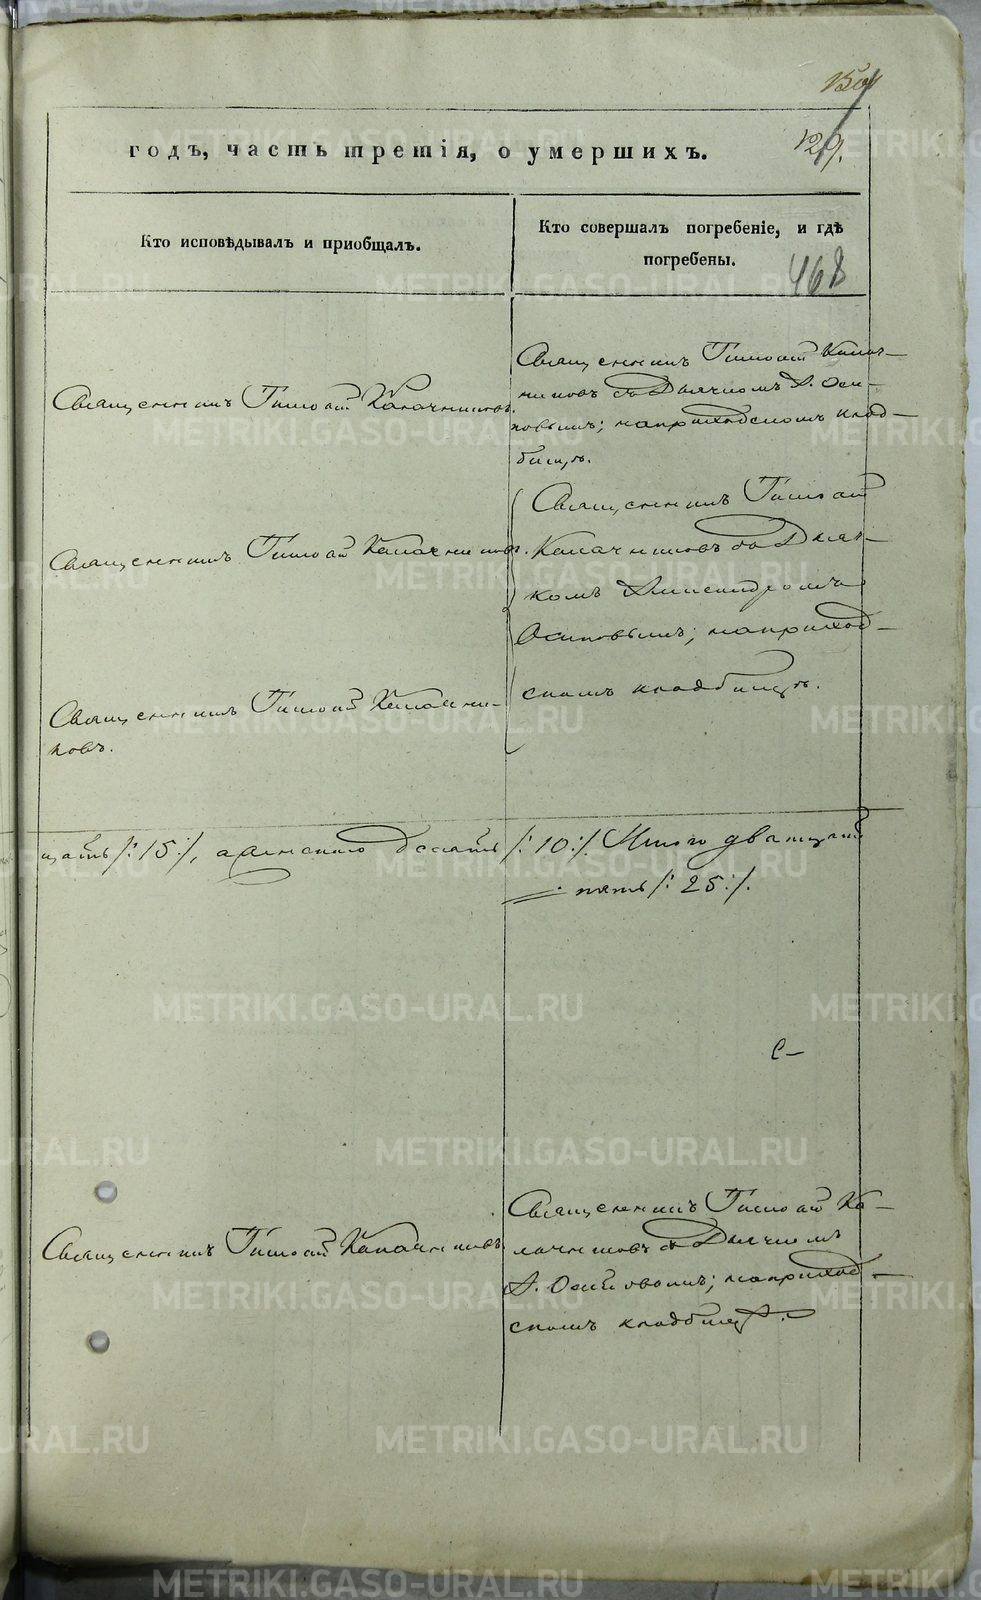 150
129.
годъ, часть третія, о умершихъ.
Кто исповѣдывалъ и приобщалъ.
Кто совершалъ погребеніе, и гдѣ
погребены.
468
Священникъ Тимоѳей Калачниковъ.
Священникъ Тимоѳей Калач-
никовъ съ Дьячкомъ А. Оси-
повымъ; на приходскомъ клад-
бищѣ.
Священникъ Тимоѳей Калачниковъ.
Священникъ Тимоѳей
Калачниковъ съ Дьяч-
комъ Александромъ
Осиповымъ; на приход-
скомъ кладбищѣ.
Священникъ Тимоѳей Калачни-
ковъ.
цать /: 15 :/, а женского десять /: 10 :/. Итого дватцать
пять /: 25 :/.
Священникъ Тимоѳей Калачниковъ.
Священникъ Тимоѳей Ка-
лачниковъ съ Дьячкомъ
А. Осиповымъ; на приход-
скомъ кладбищѣ.
METRIKI.GASO-URAL.RU